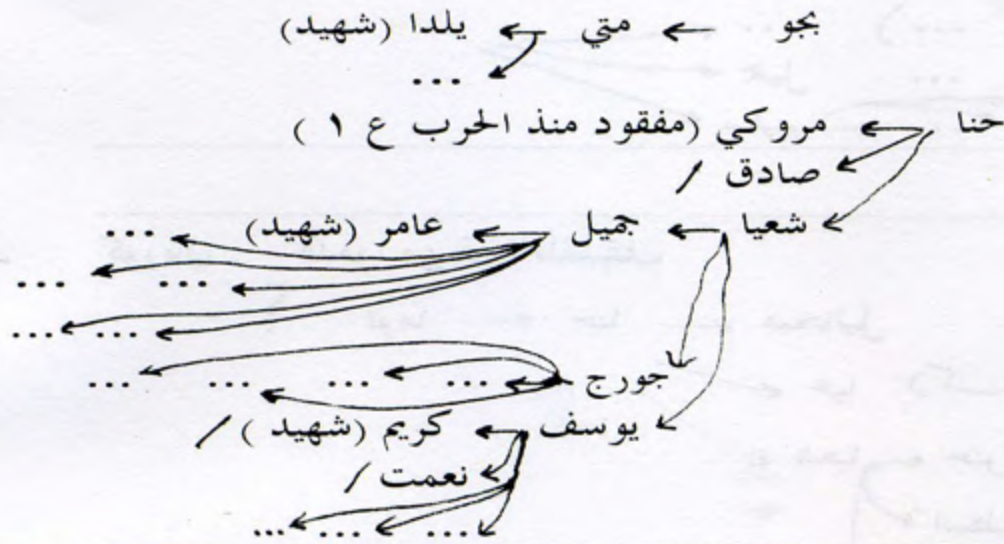 بجو ← متي ← يلدا (شهيد)
...
حنا ← مروكي (مفقود منذ الحرب ع ١ )
صادق /
شعيا ← جميل ← عامر (شهيد) ...
... ...
... ...
جورج ... ... ... ...
يوسف ← كريم (شهيد ) /
نعمت /
... ... ...